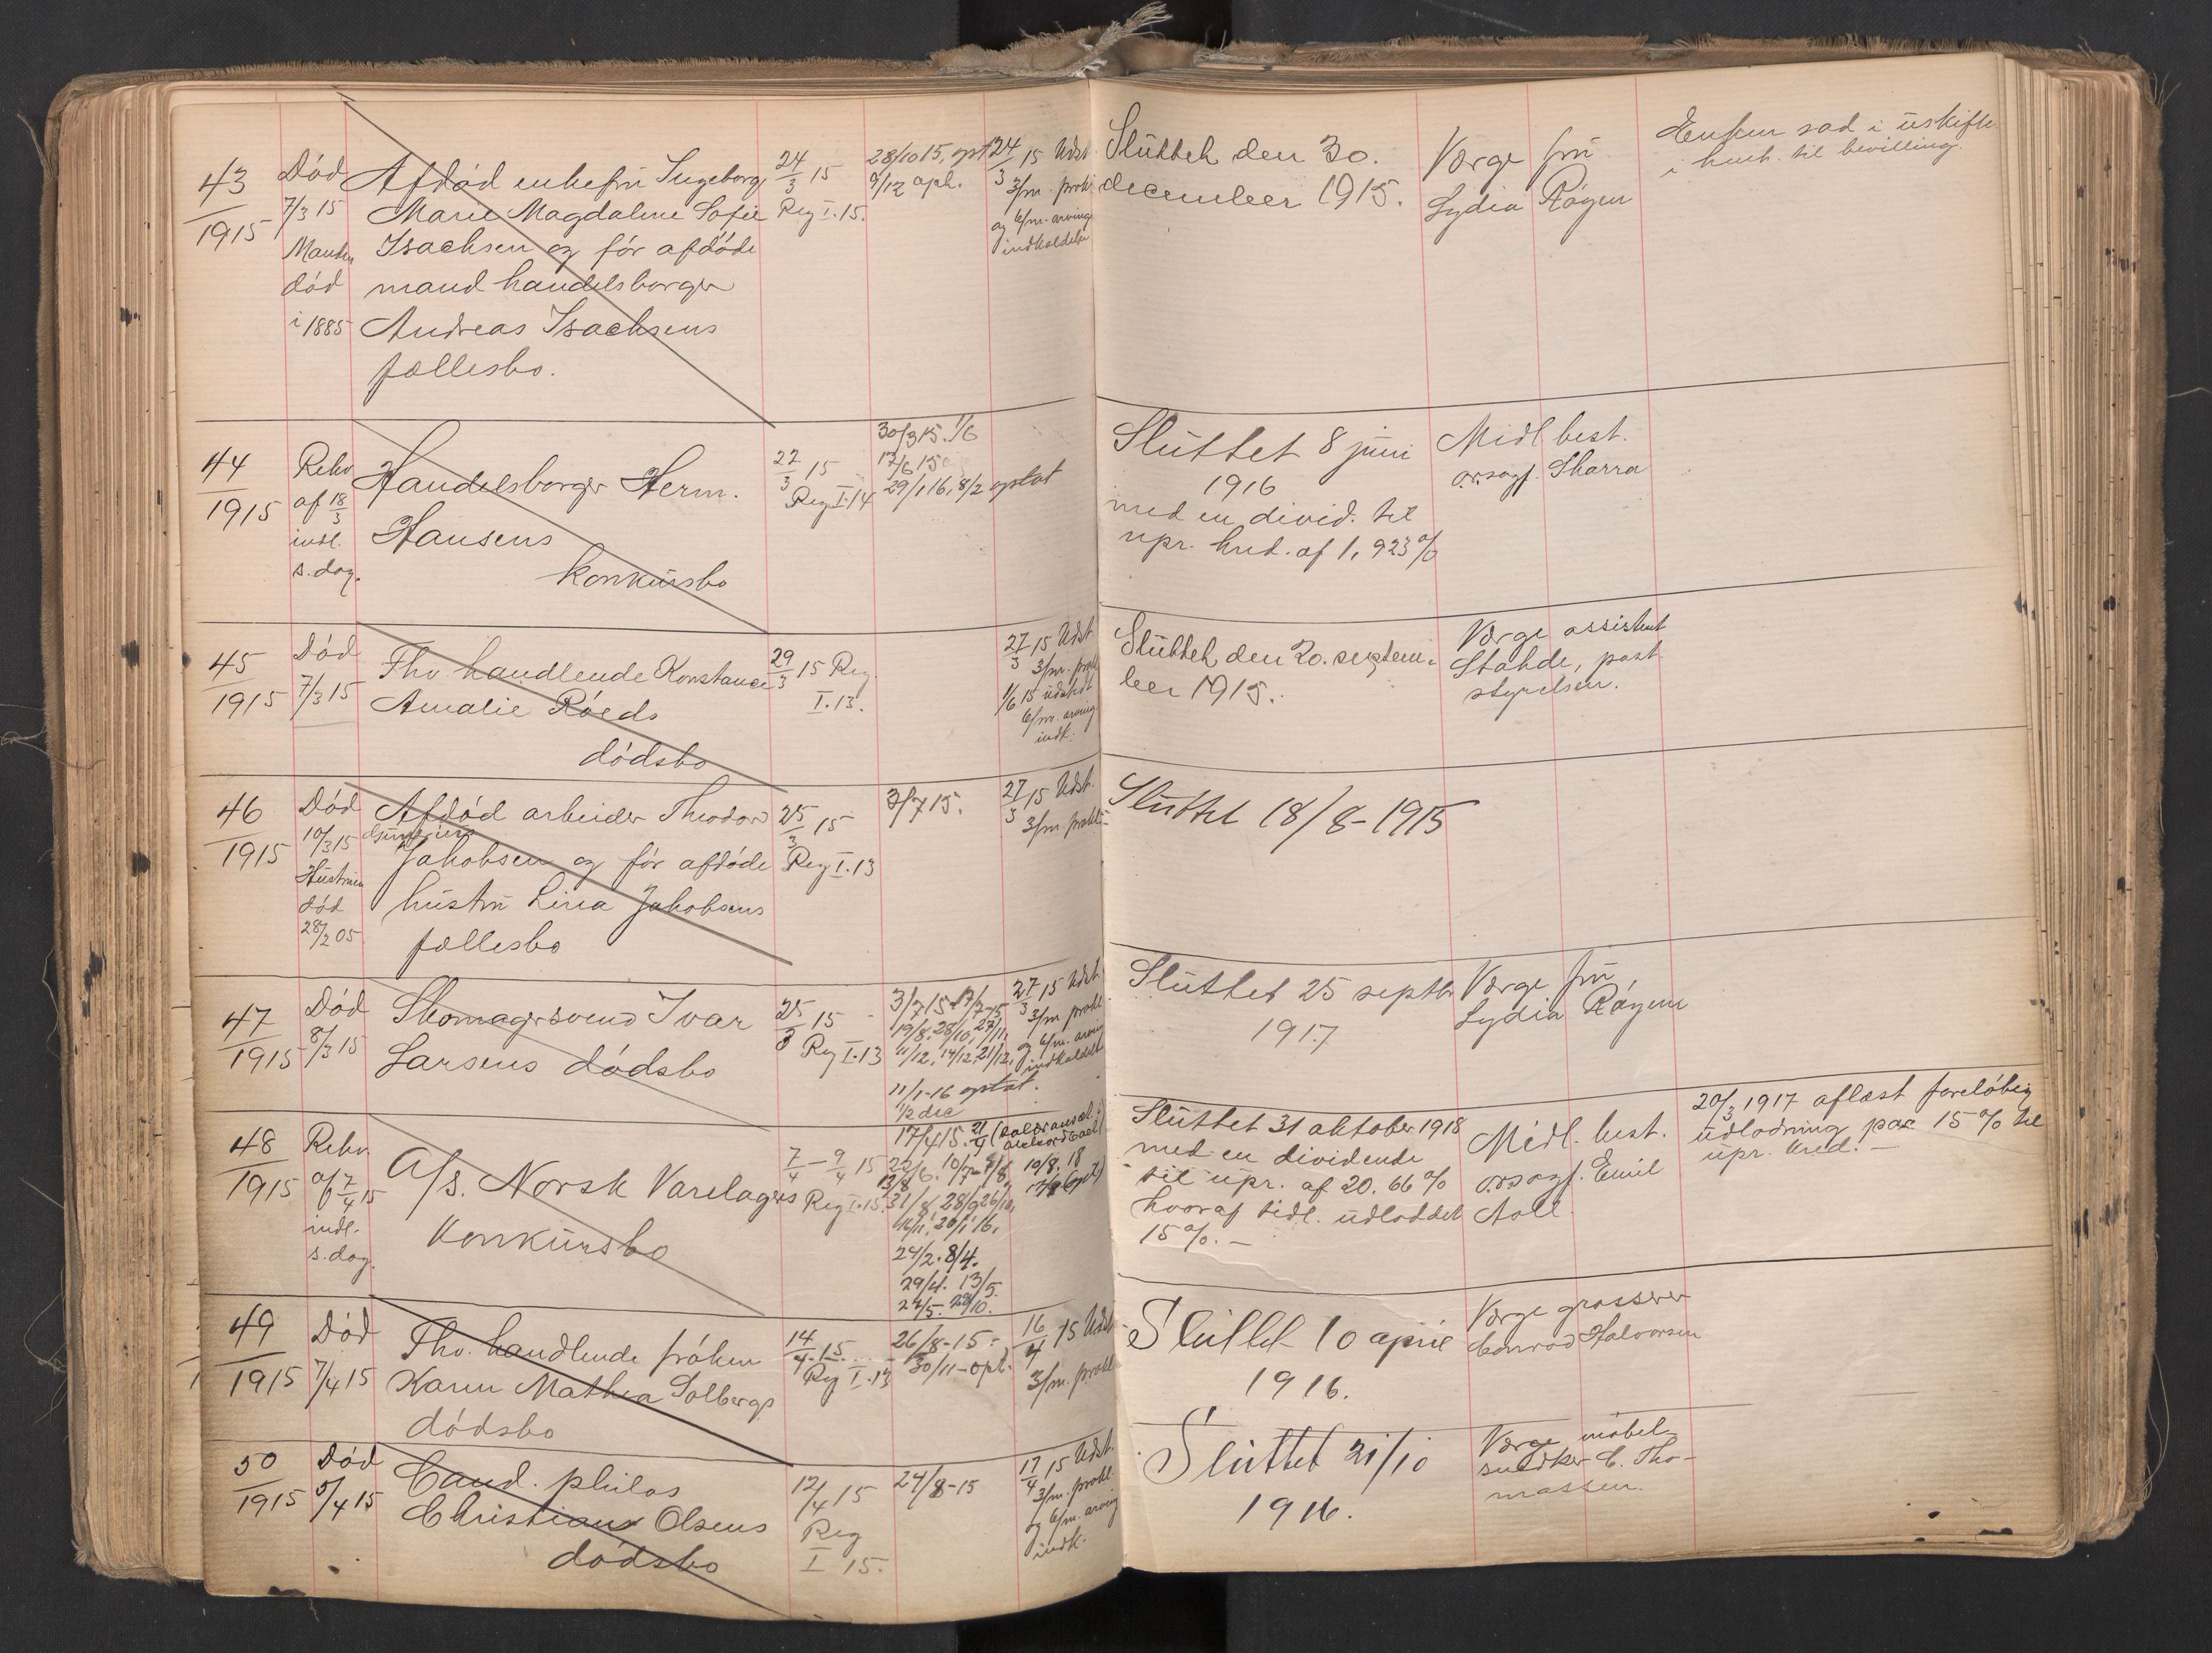 43
1915
Død
7/3 15
Manden
død
i 1885
Afdød enkefru Ingeborg
Marie Magdalene Sofie
Isachsen og før afdøde
mand handelsborger
Andreas Isachsens
fællesbo.
24/3 15
Reg I. 15.
28/10 15, opt
9/12 opt.
24/3 15 Udst.
3/m. prokl.
og 6/m. arving
indkaldelse
Sluttet den 30.
december 1915.
Værge fru
Lydia Røyem
Enken sad i uskifte
i henh. til bevilling.
44
1915
Rekv
af 18/3
indl.
s. dag.
Handelsborger Herm.
Hansens
konkursbo
27/3 15
Reg I. 14
30/3 15. 1/6
17/6 15
29/1 16, 8/2 optat
Sluttet 8 juni
1916
med en divid. til
upr. kred. af 1,923 %
Midl. best.
o.r.sagf. Skarra
45
1915
Død
7/3 15
Fhv. handlende Konstance
Amalie Røeds
dødsbo
29/3 15 Reg
I. 13.
27/3 15 Udst.
3/m. prokl
1/6 15 udstedt
6/m. arving
indk.
Sluttet den 20. septem-
ber 1915.
Værge assistent
Stahde, post
styrelsen.
46
1915
Død
10/3 15
Hustruen
død
28/2 05
Afdød arbeider Theodor
Jakobsen og før afdøde
hustru Lina Jakobsens
fællesbo
25/3 15
Reg I. 13
3/7 15.
27/3 15 Udst.
3/m. prokl.
Sluttet 18/8-1915
47
1915
Død
8/3 15
Skomagersvend Ivar
Larsens dødsbo
25/3 15
Reg I. 13
3/7 15 17/7 15
19/8. 28/10, 27/11,
11/12, 14/12, 21/12,
11/1-16 optat.
27/3 15 Udst.
3/m prokl
og 6/m. arving
indkaldelse
Sluttet 25 septbr
1917
Værge fru
Lydia Røyem
48
1915
Rekv.
af 7/4 15
indl.
s. dag.
A/s. Norsk Varelagers
Konkursbo
7/4 – 9/4 15
Reg I. 15.
17/4 15. 21/4
31/8, 28/9 26/10,
24/2. 8/4.
29/4. 13/5.
24/5. 28/10.
Sluttet 31 oktober 1918
med en dividende
til upr. af 20.66 %
hvoraf tidl. udloddet
15 %. –
Midl. best.
o.r.sagf. Emil
Aall.
20/3 1917 aflæst foreløbig
udlodning paa 15 % til
upr. kred. –
49
1915
Død
7/4 15
Fhv. handlende frøken
Karen Mathea Solbergs
dødsbo
14/4-15
Reg I. 13
26/8-15-
30/11-opt.
16/4 15 Udst
3/m. prokl
Sluttet 10 april
1916.
Værge grosserer
Conrad Halvorsen
50
1915
Død
5/4 15
Cand. philos
Christian Olsens
dødsbo
12/4 15
Reg
I 15.
24/8-15
17/4 15 Udst.
3/m. prokl.
og 6/m. arving
indk.
Sluttet 21/10
1916.
Værge møbel-
snedker C. Tho-
massen.